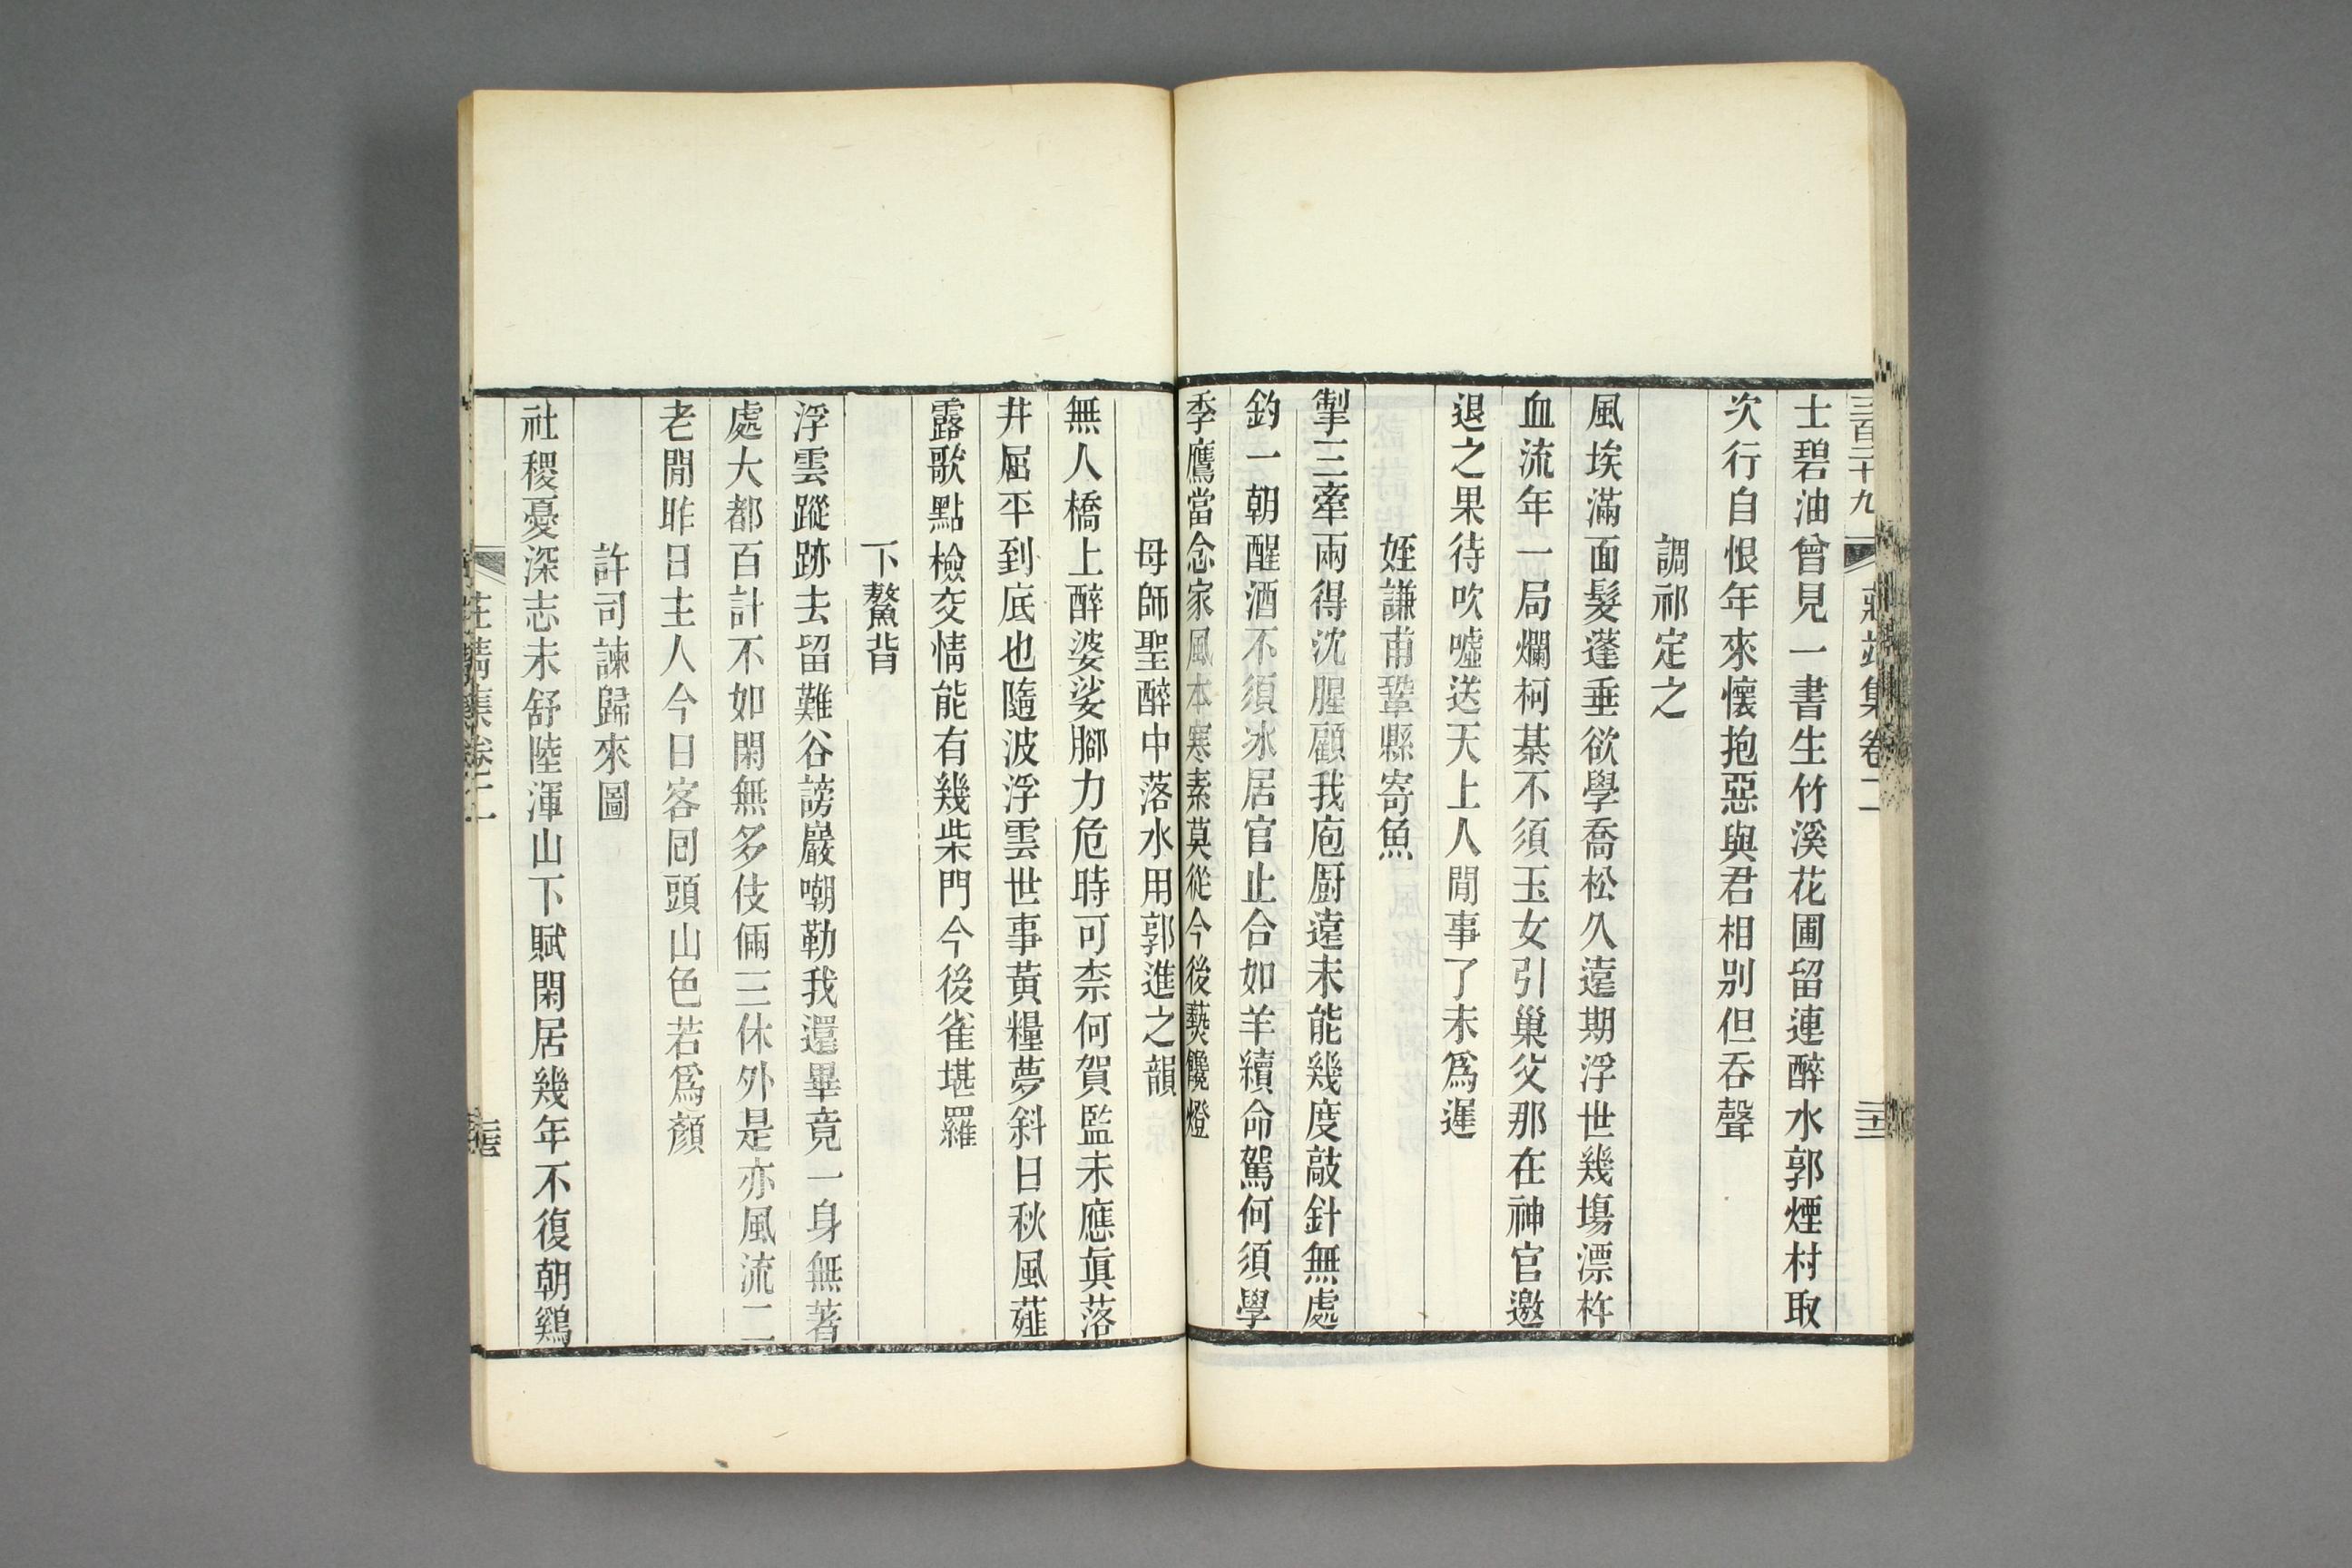 三百二十九 莊靖集卷二
士碧油曾見一書生竹溪花圃留連醉水郭煙村取
次行自恨年來懷抱惡與君相別但吞聲
調祁定之
風埃滿面髮蓬垂欲學喬松久遠期浮世幾場漂杵
血流年一局爛柯棊不須玉女引巢父那在神官邀
退之果待吹噓送天上人間事了未爲遲
姪謙甫鞏縣寄魚
掣三牽兩得沈腥顧我庖廚遠未能幾度敲針無處
釣一朝醒酒不須冰居官止合如羊續命駕何須學
季鷹當念家風本寒素莫從今後爇饞燈
母師聖醉中落水用郭進之韻
無人橋上醉婆娑腳力危時可柰何賀監未應眞落
井屈平到底也隨波浮雲世事黃糧夢斜日秋風薤
露歌點檢交情能有幾柴門今後雀堪羅
下鰲背
浮雲蹤跡去留難谷謗巖嘲勒我還畢竟一身無著
處大都百計不如閑無多伎倆三休外是亦風流二
老閒昨日主人今日客回頭山色若爲顏
許司諫歸來圖
社稷憂深志未舒陸渾山下賦閑居幾年不復朝雞
莊靖集卷二